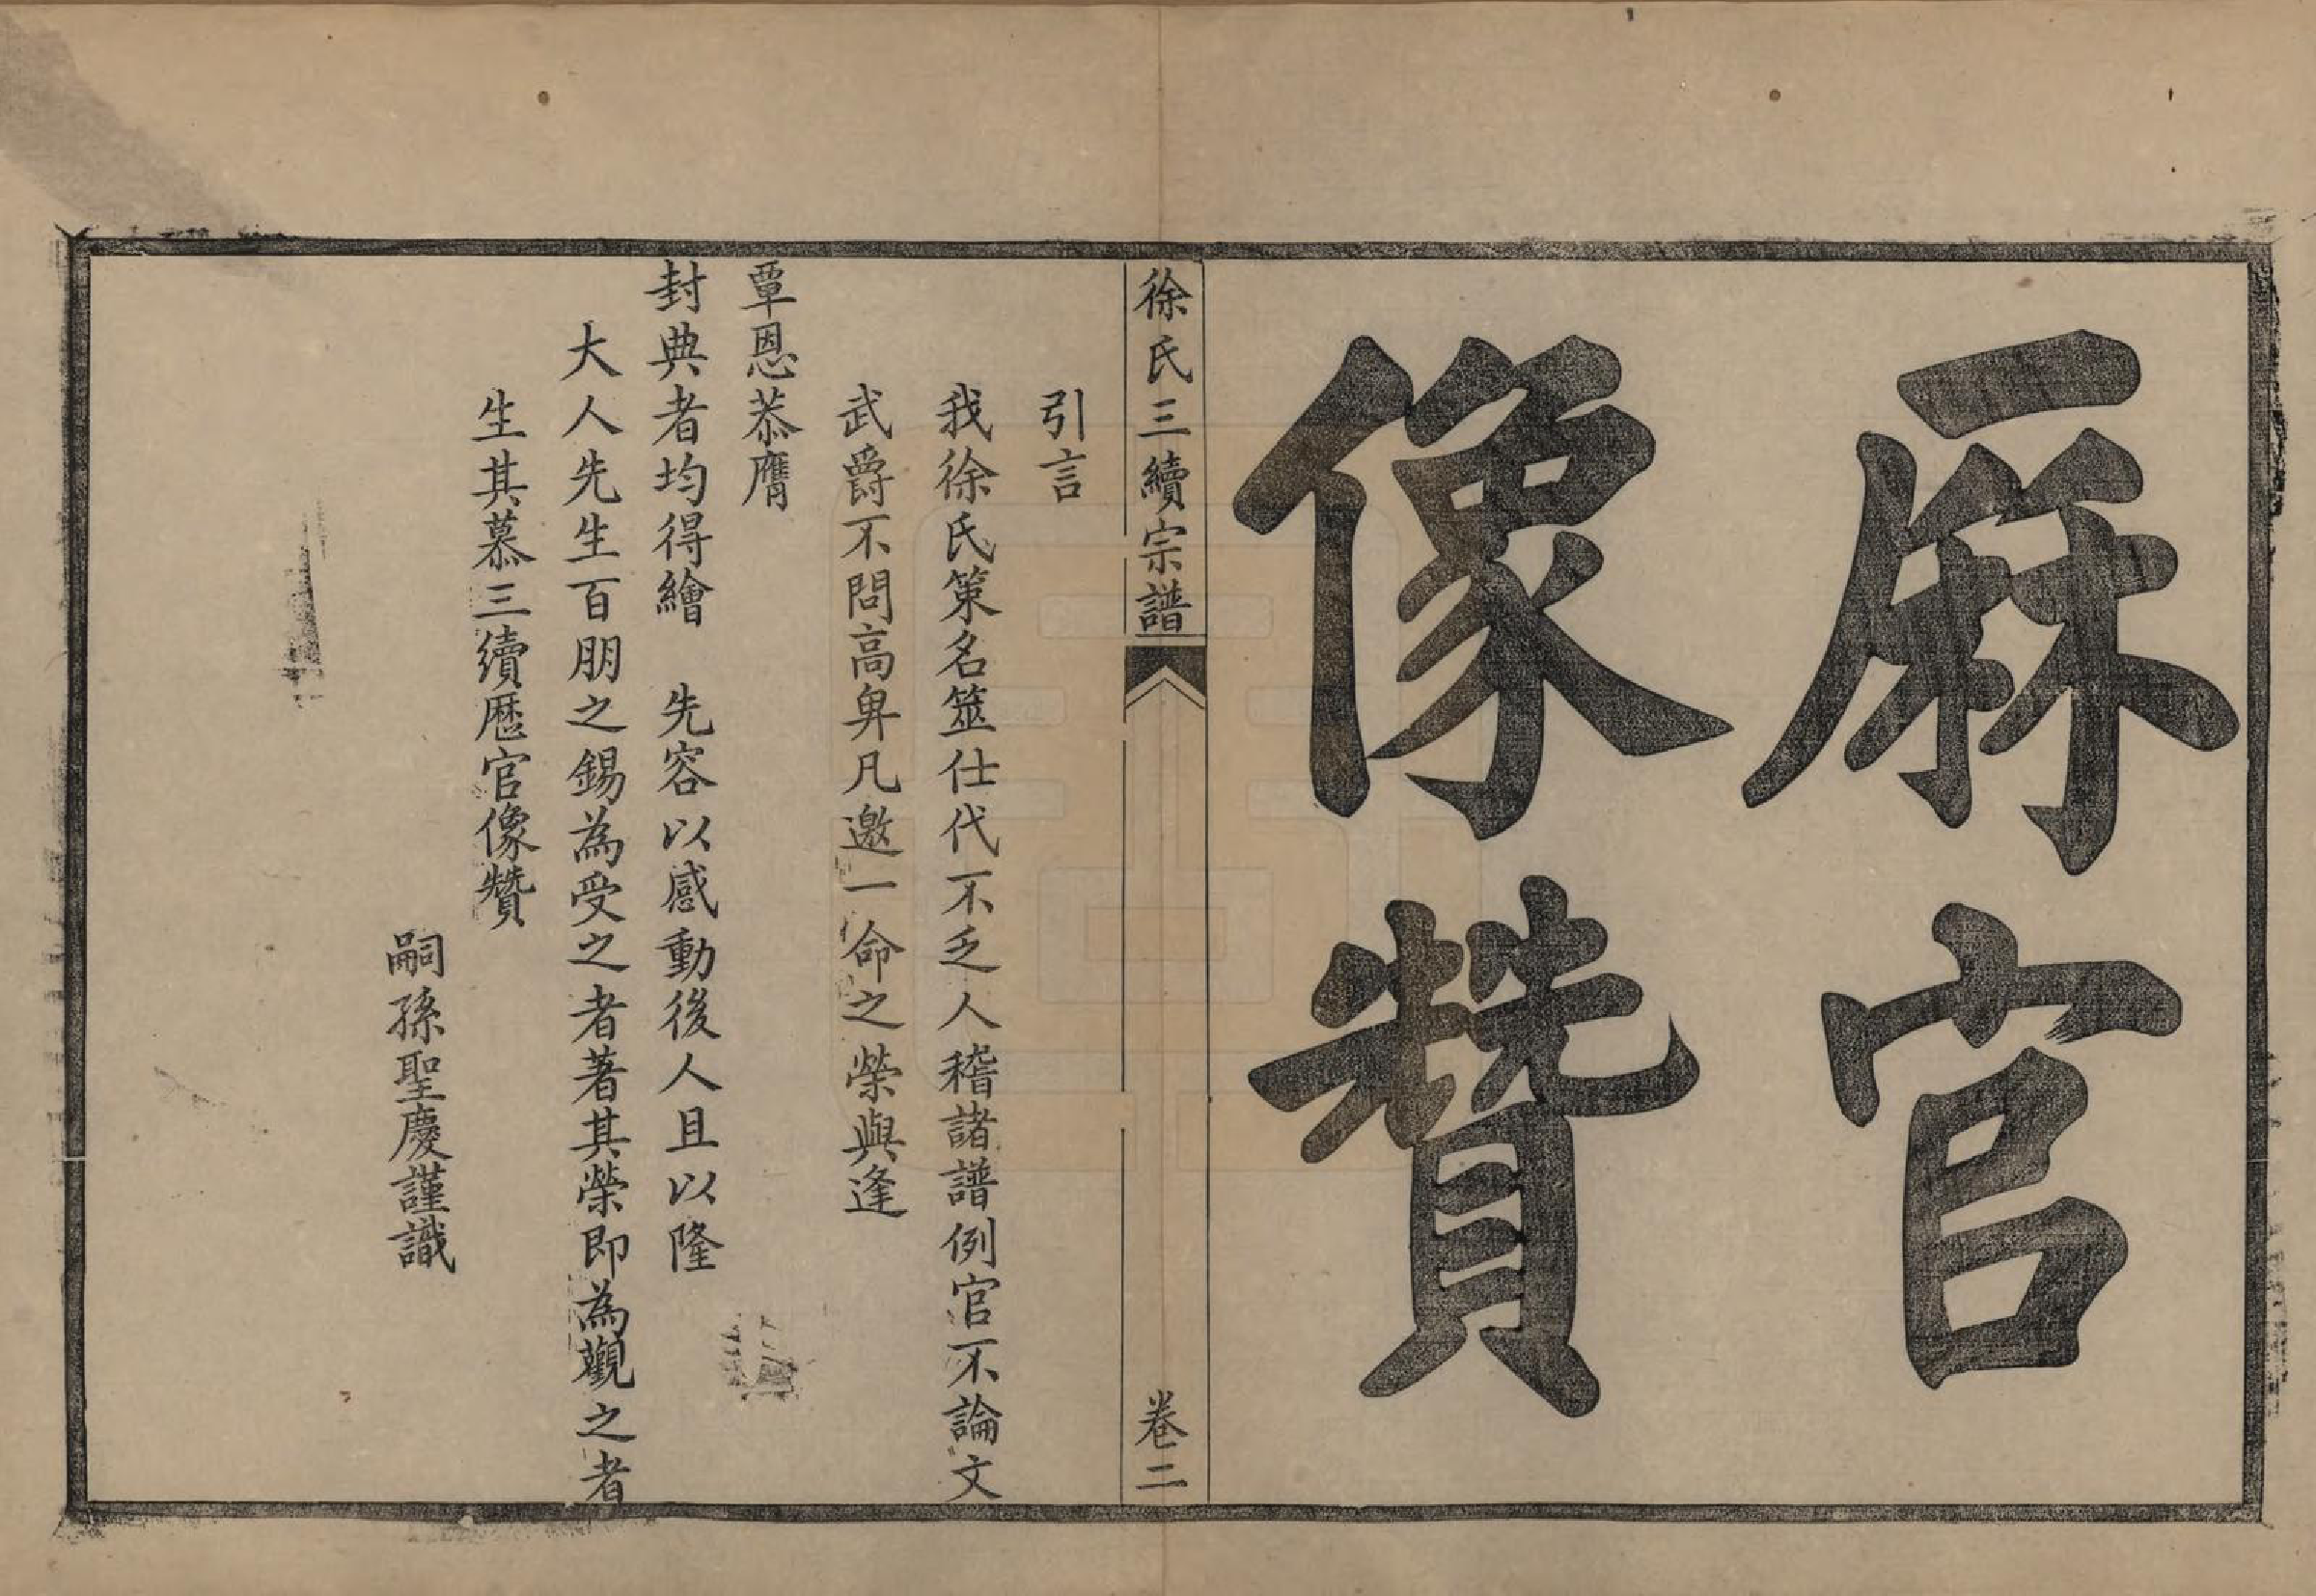 厤官
像贊
徐氏三續宗譜
卷二
引言
我徐氏策名筮仕代不乏人稽諸譜例官不論文
武爵不問高畁凡邀一命之榮與逢
覃恩恭膺
封典者均得繪　先容以感動後人且以隆
大人先生百朋之錫為受之者著其榮即為觀之者
生其慕三續歷官像贊
嗣孫聖慶謹識